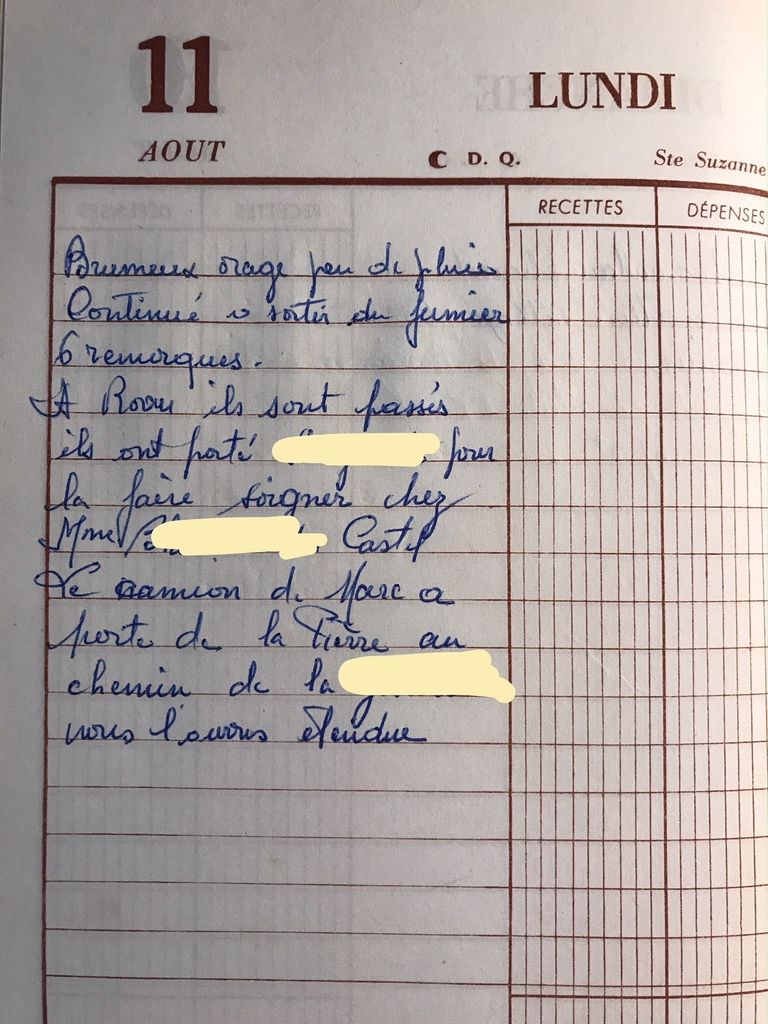 11
AOUT
LUNDI
C D. Q.
Ste Suzanne
RECETTES
DÉPENSES
Brumeux orage peu de pluie
Continué a sortir du fumier
6 remorques.
A ils sont passés
ils ont porté pour
la faire soigner chez
Mme Castel
Le camion de Marc a
porte de la Pierre au
chemin de la
nous l'avons étendue